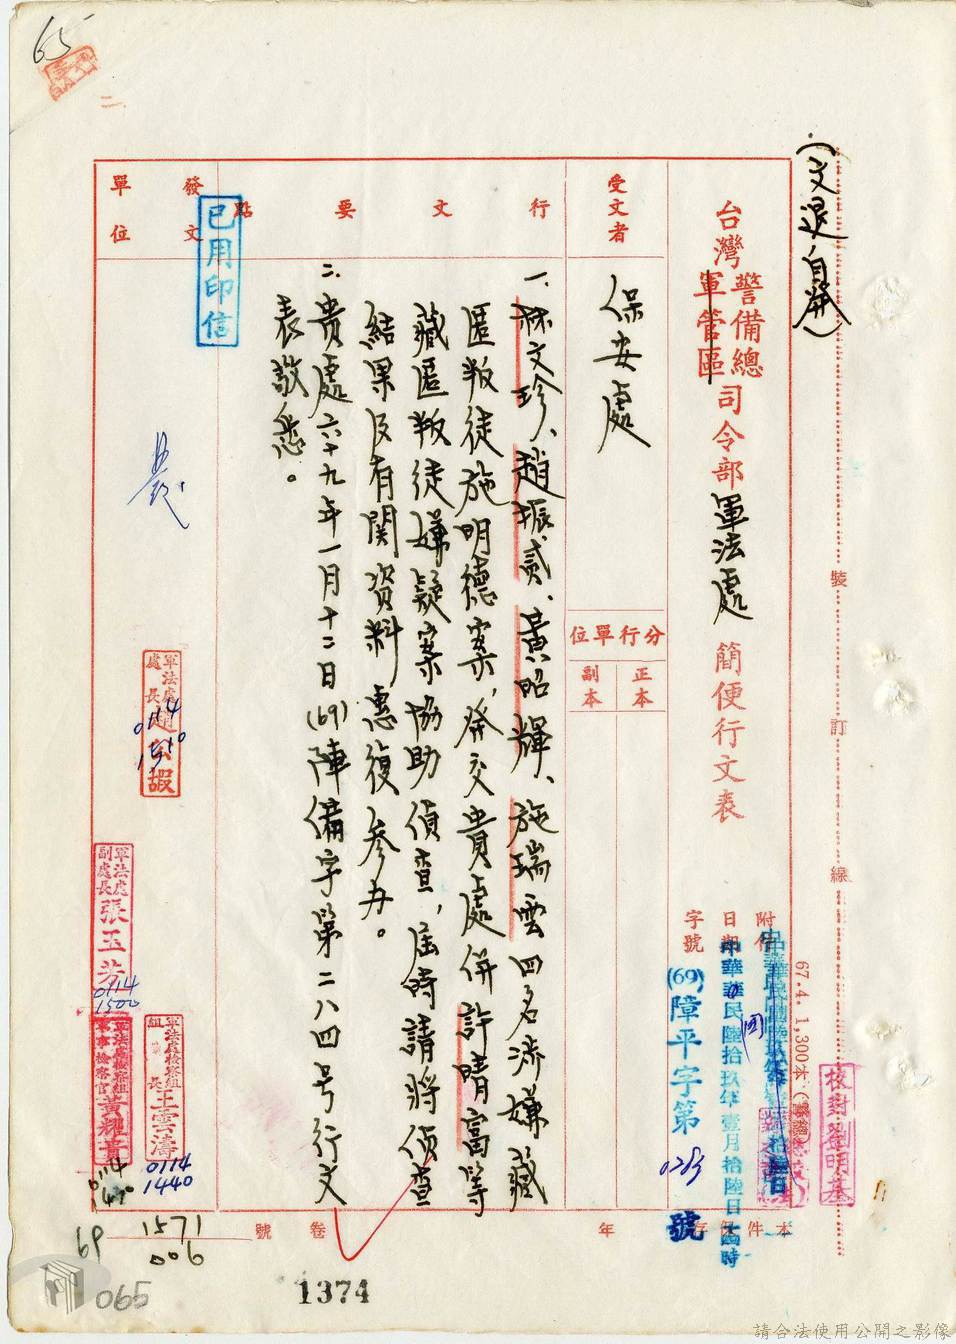 65
二、
(文退自辦)
裝
訂
線
67.4. 1,300本
校對劉明基
台灣警備總司令部軍法處簡便行文表
軍管區
附件
日期
中華民國陸拾玖年壹月拾陸日
字號
(69)障平字第0283號
受文者
保安處
分行單位
正本
副本
行文要點
一、林文珍、趙振貳、黃昭輝、施瑞雲四名涉嫌藏
匿叛徒施明德案,發交貴處併許晴富等
藏匿叛徒嫌疑案協助偵查,屆時請將偵查
結果及有關資料惠復參办。
二、貴處六十九年一月十二日(69)陣備字第二八四号行文
表敬悉。
發文單位
已用印信
農
軍法處處長
0114
1510
軍法處副處長張玉芳
0114
1500
軍法處檢察組組長王雲濤
0114
1440
軍法處檢察組軍事檢察官黃耀
0114
本件保存
年
卷
號
69
1571
006
065
1374
請合法使用公開之影像